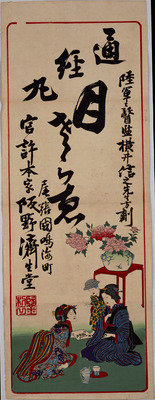 陸軍々醫監横井信之先生劑
通經
月さらゑ
丸
官許本家阪野濟生堂
尾張國鳴海町